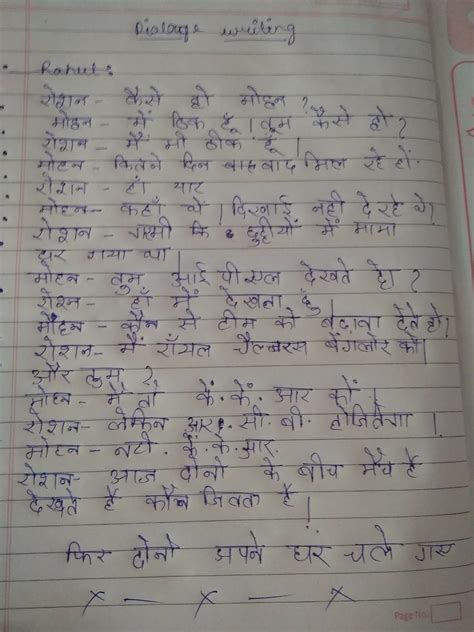 Dialouge writing
Rahul:
रोशन - कैसे हो मोहन ?
मोहन - में ठिक हूँ । तुम कैसे हो ?
रोशन - मैं भी ठीक हूँ ।
मोहन - कितने दिन बाद मिल रहे हों.
रोशन - हां यार
मोहन - कहाँ थें । दिखाई नही दे रहे थे।
रोशन - गरमी कि छुट्टीयों में मामा
घर गया था ।
मोहन - तुम आई पी एल देखते हो ?
रोशन - हाँ में देखता हुँ ।
मोहन - कौन से टीम को बढ़ावा देते हो।
रोशन - मैं राँयल चैलेन्जरस बेंगलोर को।
और तुम ?
मोहन - मैं तो के. के. आर कों ।
रोशन - लेकिन आर. सी. बी. हीजितेगा ।
मोहन - नही. के. के. आर.
रोशन - आज दोनो के बीच मैच है
देखते है कौन जितता है ।
फिर दोनो अपने घर चले गए
x - x - x
Page No.